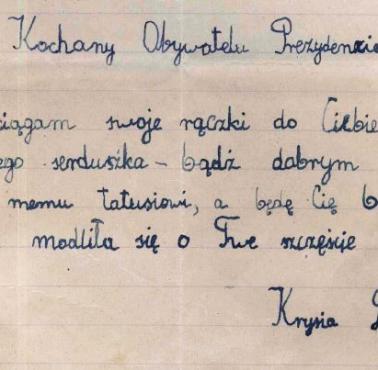 Kochany Obywatelu Prezydencie
ciągam swoje rączki do Ciebie
ego serduszka - bądź dobrym
memu tatusiowi, a będę Cię b
modliła się o Twe szczęście
Krysia